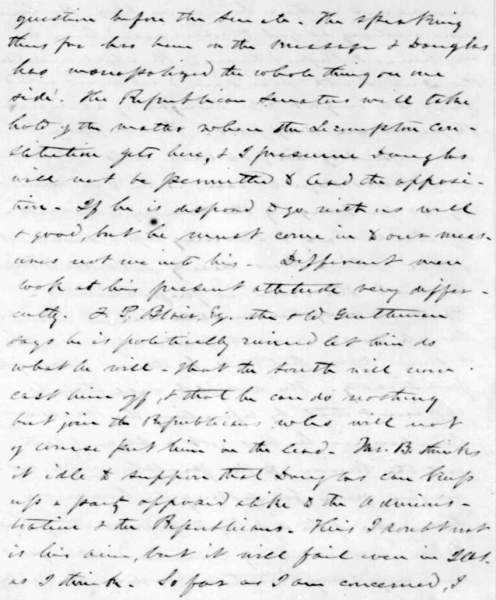 question before the Senate. The speaking
thus far has been on the message & Douglas
has monopolized the whole thing on one
side. The Republican Senators will take
hold of the matter when the Lecompton con-
stitution gets here, & I presume Douglas
will not be permitted to lead the opposi-
tion. If he is disposed to go with us well
& good, but he must come in to our meas-
ures not we into his. Different men
look at his present attitude very differ-
ently. F. P. Blair, Esq. the old Gentleman
says he is politically ruined let him do
what he will - that the South will
cast him off, & that he can do nothing
but join the Republicans who will not
of course put him in the lead. Mr. B. thinks
it idle to suppose that Douglas can keep
up a party opposed alike to the Adminis-
tration & the Republicans. This I doubt not
is his aim, but it will fail even in Ills.
as I think. So far as I am concerned, I